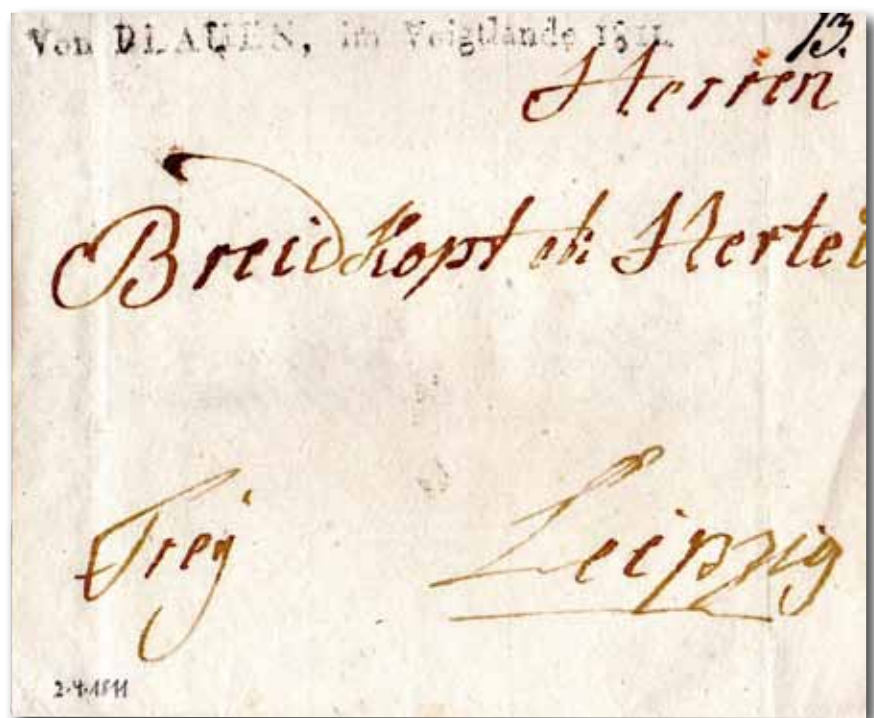 Von PLAUEN, im Voigtlande 1811.
13.
Herren
Breidkopf et Hertel
Frey
Leipzig
2.4.1811